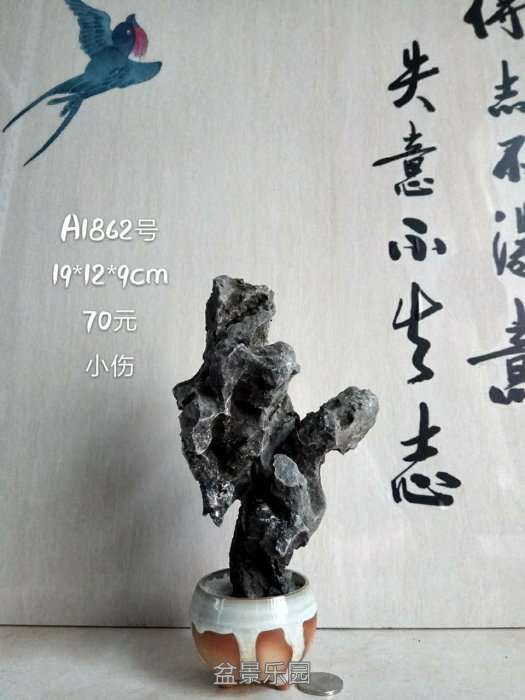 得志不忘意
失意不失志
A1862号
19*12*9cm
70元
小伤
盆景乐园